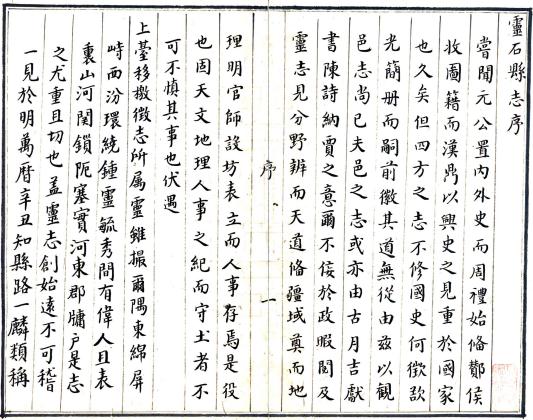 靈石縣志序
嘗聞元公置内外史而周禮始俻酇侯
收圖籍而漢鼎以興史之見重於國家
也久矣但四方之志不修國史何徵欤
光簡册而嗣前徽其道無從由兹以觀
邑志尚已夫邑之志或亦由古月吉獻
書陳詩納賈之意爾不佞於政暇閲及
靈志見分野辨而天道俻疆域奠而地
序 一
理明官師設坊表立而人事存焉是役
也固天文地理人事之紀而守土者不
可不慎其事也伏遇
上臺移檄徵志所属靈雖撮爾隅東綿屏
峙西汾環繞鍾靈毓秀間有偉人且表
裏山河関鎖阨塞實河東郡牖户是志
之尤重且切也盖靈志創始遠不可稽
一見於明萬曆辛丑知縣路一麟類稱